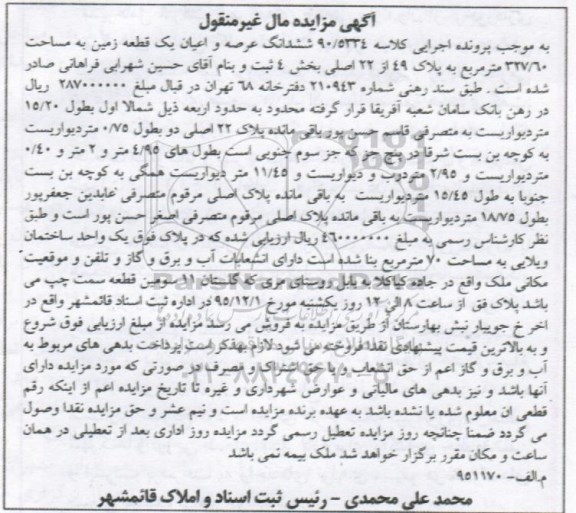 آگهی مزایده مال غیرمنقول
به موجب پرونده اجرایی کلاسه ۹۰/۵۳۳۴ ششدانگ عرصه و اعیان یک قطعه زمین به مساحت
۳۲۷/۶۰ مترمربع به پلاک ۴۹ از ۲۲ اصلی بخش ۴ ثبت و بنام آقای حسین شهرابی فراهانی صادر
شده است . طبق سند رهنی شماره ۲۱۰۹۴۳ دفترخانه ۶۸ تهران در قبال مبلغ ۲۸۷۰۰۰۰۰۰ ریال
در رهن بانک سامان شعبه آفریقا قرار گرفته محدود به حدود اربعه ذیل شمالا اول بطول ۱۵/۲۰
متردیواریست به متصرفی قاسم حسن پور باقی مانده پلاک ۲۲ اصلی دو بطول ۰/۷۵ متردیواریست
به کوچه بن بست شرقا در پنج جز که جز سوم جنوبی است بطول های ۴/۹۵ متر و ۲ متر و ۰/۴۰
متردیواریست و ۲/۹۵ متردرب و دیواریست و ۱۱/۴۵ متر دیواریست همگی به کوچه بن بست
جنوبا به طول ۱۵/۴۵ متردیواریست به باقی مانده پلاک اصلی مرقوم متصرفی عابدین جعفرپور
بطول ۱۸/۷۵ متردیواریست به باقی مانده پلاک اصلی مرقوم متصرفی اصغر حسن پور است و طبق
نظر کارشناس رسمی به مبلغ ۴۶۰۰۰۰۰۰۰ ریال ارزیابی شده که در پلاک فوق یک واحد ساختمان
ویلایی به مساحت ۷۰ مترمربع بنا شده است دارای انشعابات آب و برق و گاز و تلفن و موقعیت
مکانی ملک واقع در جاده کیاکلا به بابل روستای مری که گلستان ۱۱ سومین قطعه سمت چپ می
باشد پلاک فق از ساعت ۸ الی ۱۲ روز یکشنبه مورخ ۹۵/۱۲/۱ در اداره ثبت اسناد قائمشهر واقع در
اخر خ جویبار نبش بهارستان از طریق مزایده به فروش می رسد مزایده از مبلغ ارزیابی فوق شروع
و به بالاترین قیمت پیشنهادی نقدا فروخته می شود لازم بهذکر است پرداخت بدهی های مربوط به
آب و برق و گاز اعم از حق انشعاب و یا حق اشتراک و مصرف در صورتی که مورد مزایده دارای
آنها باشد و نیز بدهی های مالیاتی و عوارض شهرداری و غیره تا تاریخ مزایده اعم از اینکه رقم
قطعی ان معلوم شده یا نشده باشد به عهده برنده مزایده است و نیم عشر و حق مزایده نقدا وصول
می گردد ضمنا چنانچه روز مزایده تعطیل رسمی گردد مزایده روز اداری بعد از تعطیلی در همان
ساعت و مکان مقرر برگزار خواهد شد ملک بیمه نمی باشد
م.الف- ۹۵۱۱۷۰
محمد علی محمدی - رئیس ثبت اسناد و املاک قائمشهر